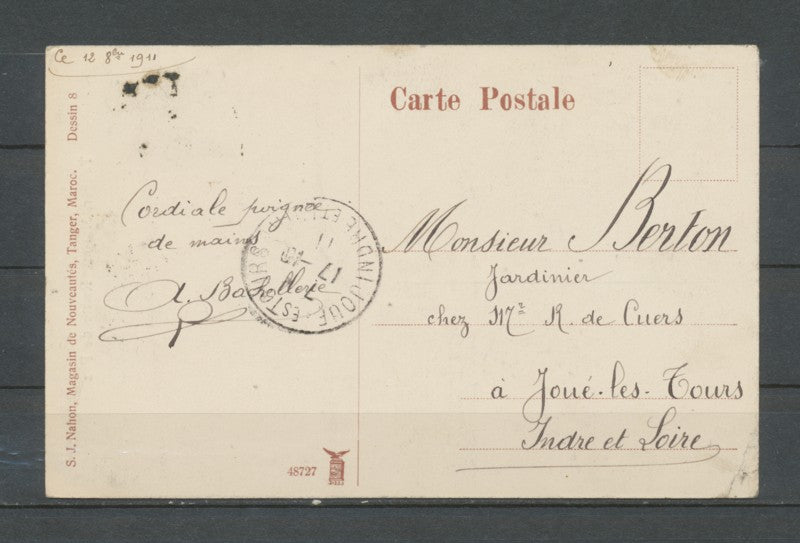 Ce 12 8bre 1911
Carte Postale
Cordiale poignée
de mains
Monsieur Berton
Jardinier
chez Mr R. de Cuers
à Joué-les-Tours
Indre et Loire
JOUÉ-LES-TOURS
INDRE ET L
S. J. Nahon, Magasin de Nouveautés, Tanger, Maroc. Dessin 8
48727